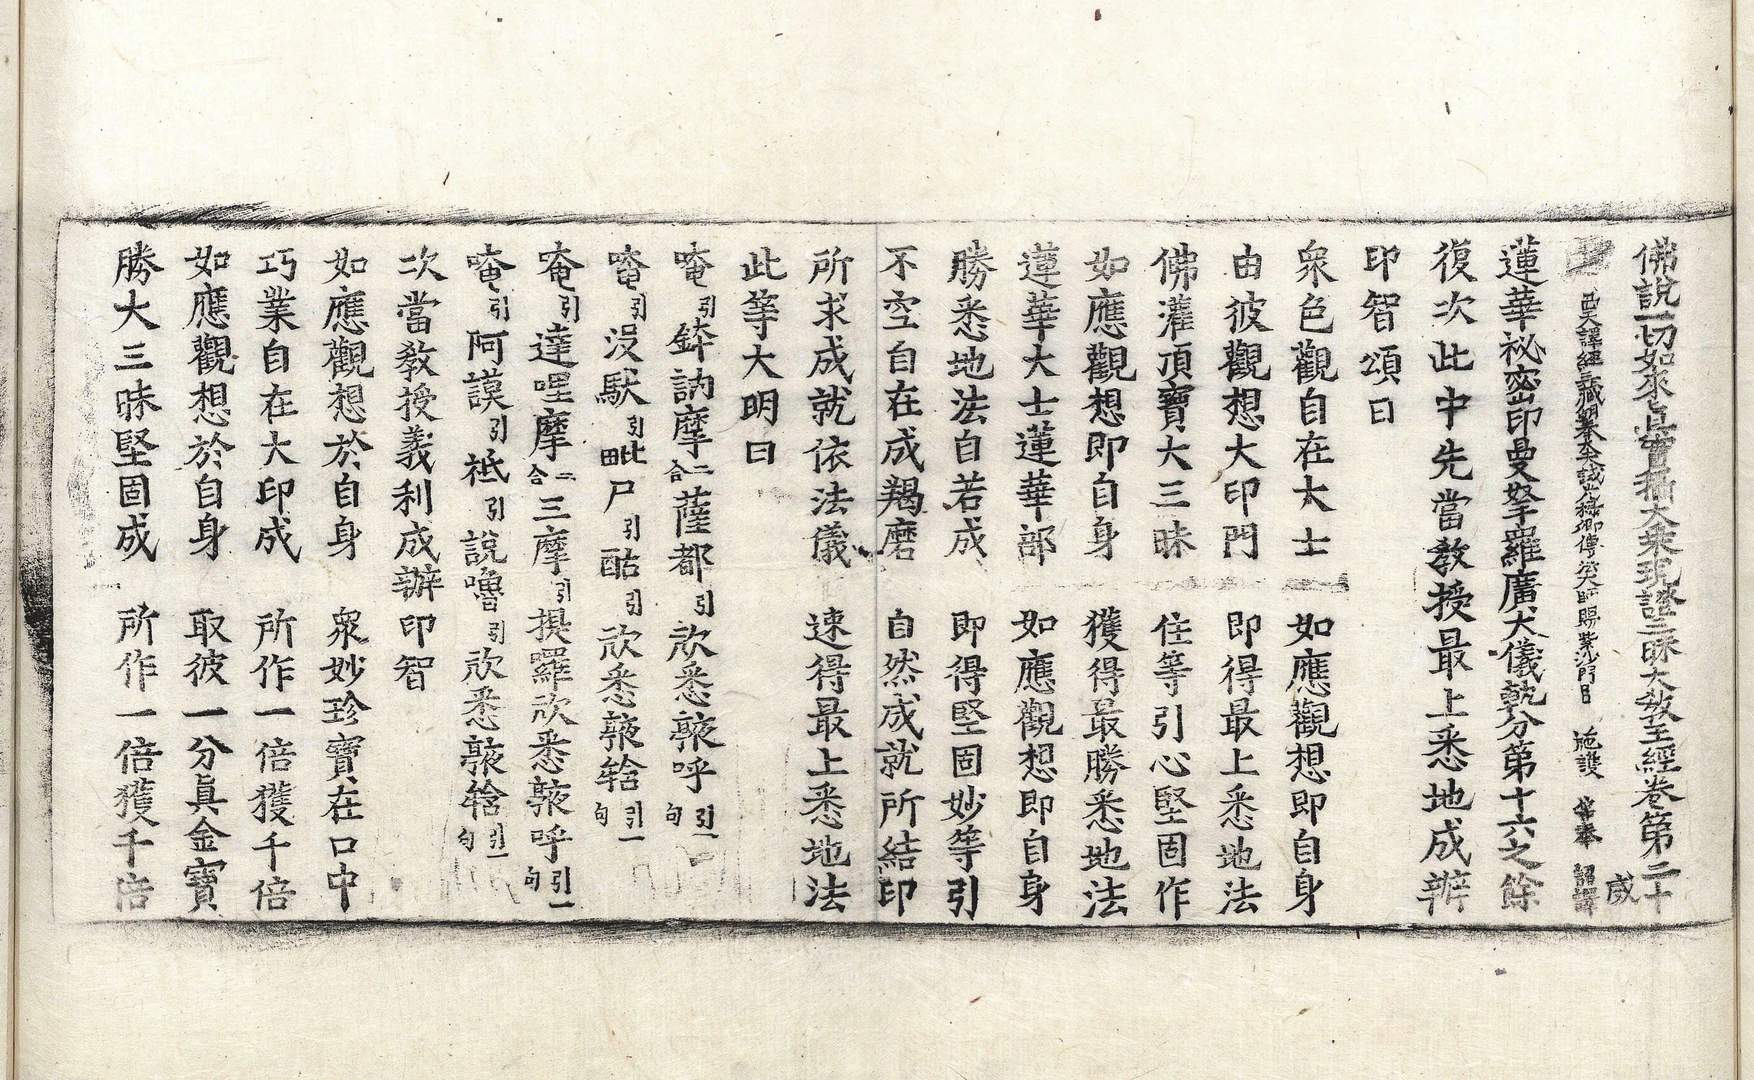 佛說一切如來真實攝大乘現證三昧大教王經卷第二十 咸
西天譯經三藏朝奉大夫試光祿卿傳法大師賜紫沙門臣 施護 等奉 詔譯
蓮華祕密印曼拏羅廣大儀軌分第十六之餘
復次此中先當教授最上悉地成辦
印智頌曰
衆色觀自在大士 如應觀想即自身
由彼觀想大印門 即得最上悉地法
佛灌頂寶大三昧 住等引心堅固作
如應觀想即自身 獲得最勝悉地法
蓮華大士蓮華部 如應觀想即自身
勝悉地法自若成 即得堅固妙等引
不空自在成羯磨 自然成就所結印
所求成就依法儀 速得最上悉地法
此等大明曰
唵引鉢訥摩二合薩都引欣悉䫂呼引一句
唵引沒馱引毗尸引酤引欣悉䫂䭉引一句
唵引達哩摩二合三摩引提羅欣悉䫂呼引一句
唵引阿謨引祗引說嚕引欣悉䫂䭉引一句
次當教授義利成辦印智
如應觀想於自身 衆妙珍寶在口中
巧業自在大印成 所作一倍獲千倍
如應觀想於自身 取彼一分眞金寶
勝大三昧堅固成 所作一倍獲千倍